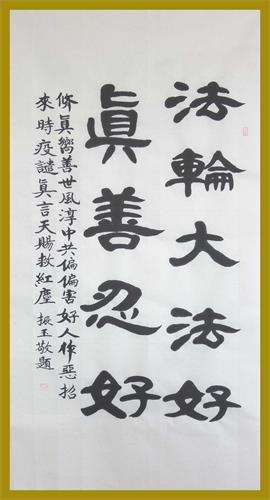 法輪大法好
眞善忍好
修眞嚮善世風淳中共偏偏害好人作惡招
來時疫譴眞言天賜救紅塵 振玉敬題